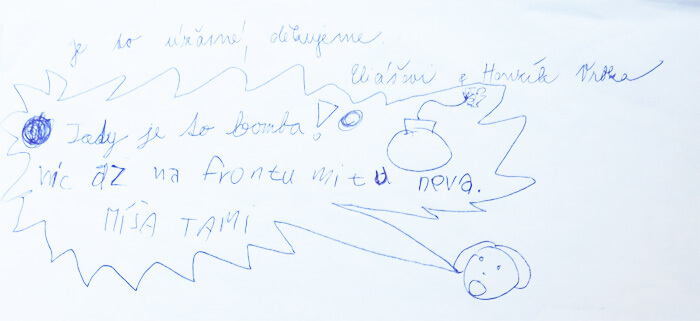 je to úžasné, děkujeme.
Eliášovi a Vrška
Tady je to bomba!
nic až na frontu mi tu neva.
MÍŠA TAMI